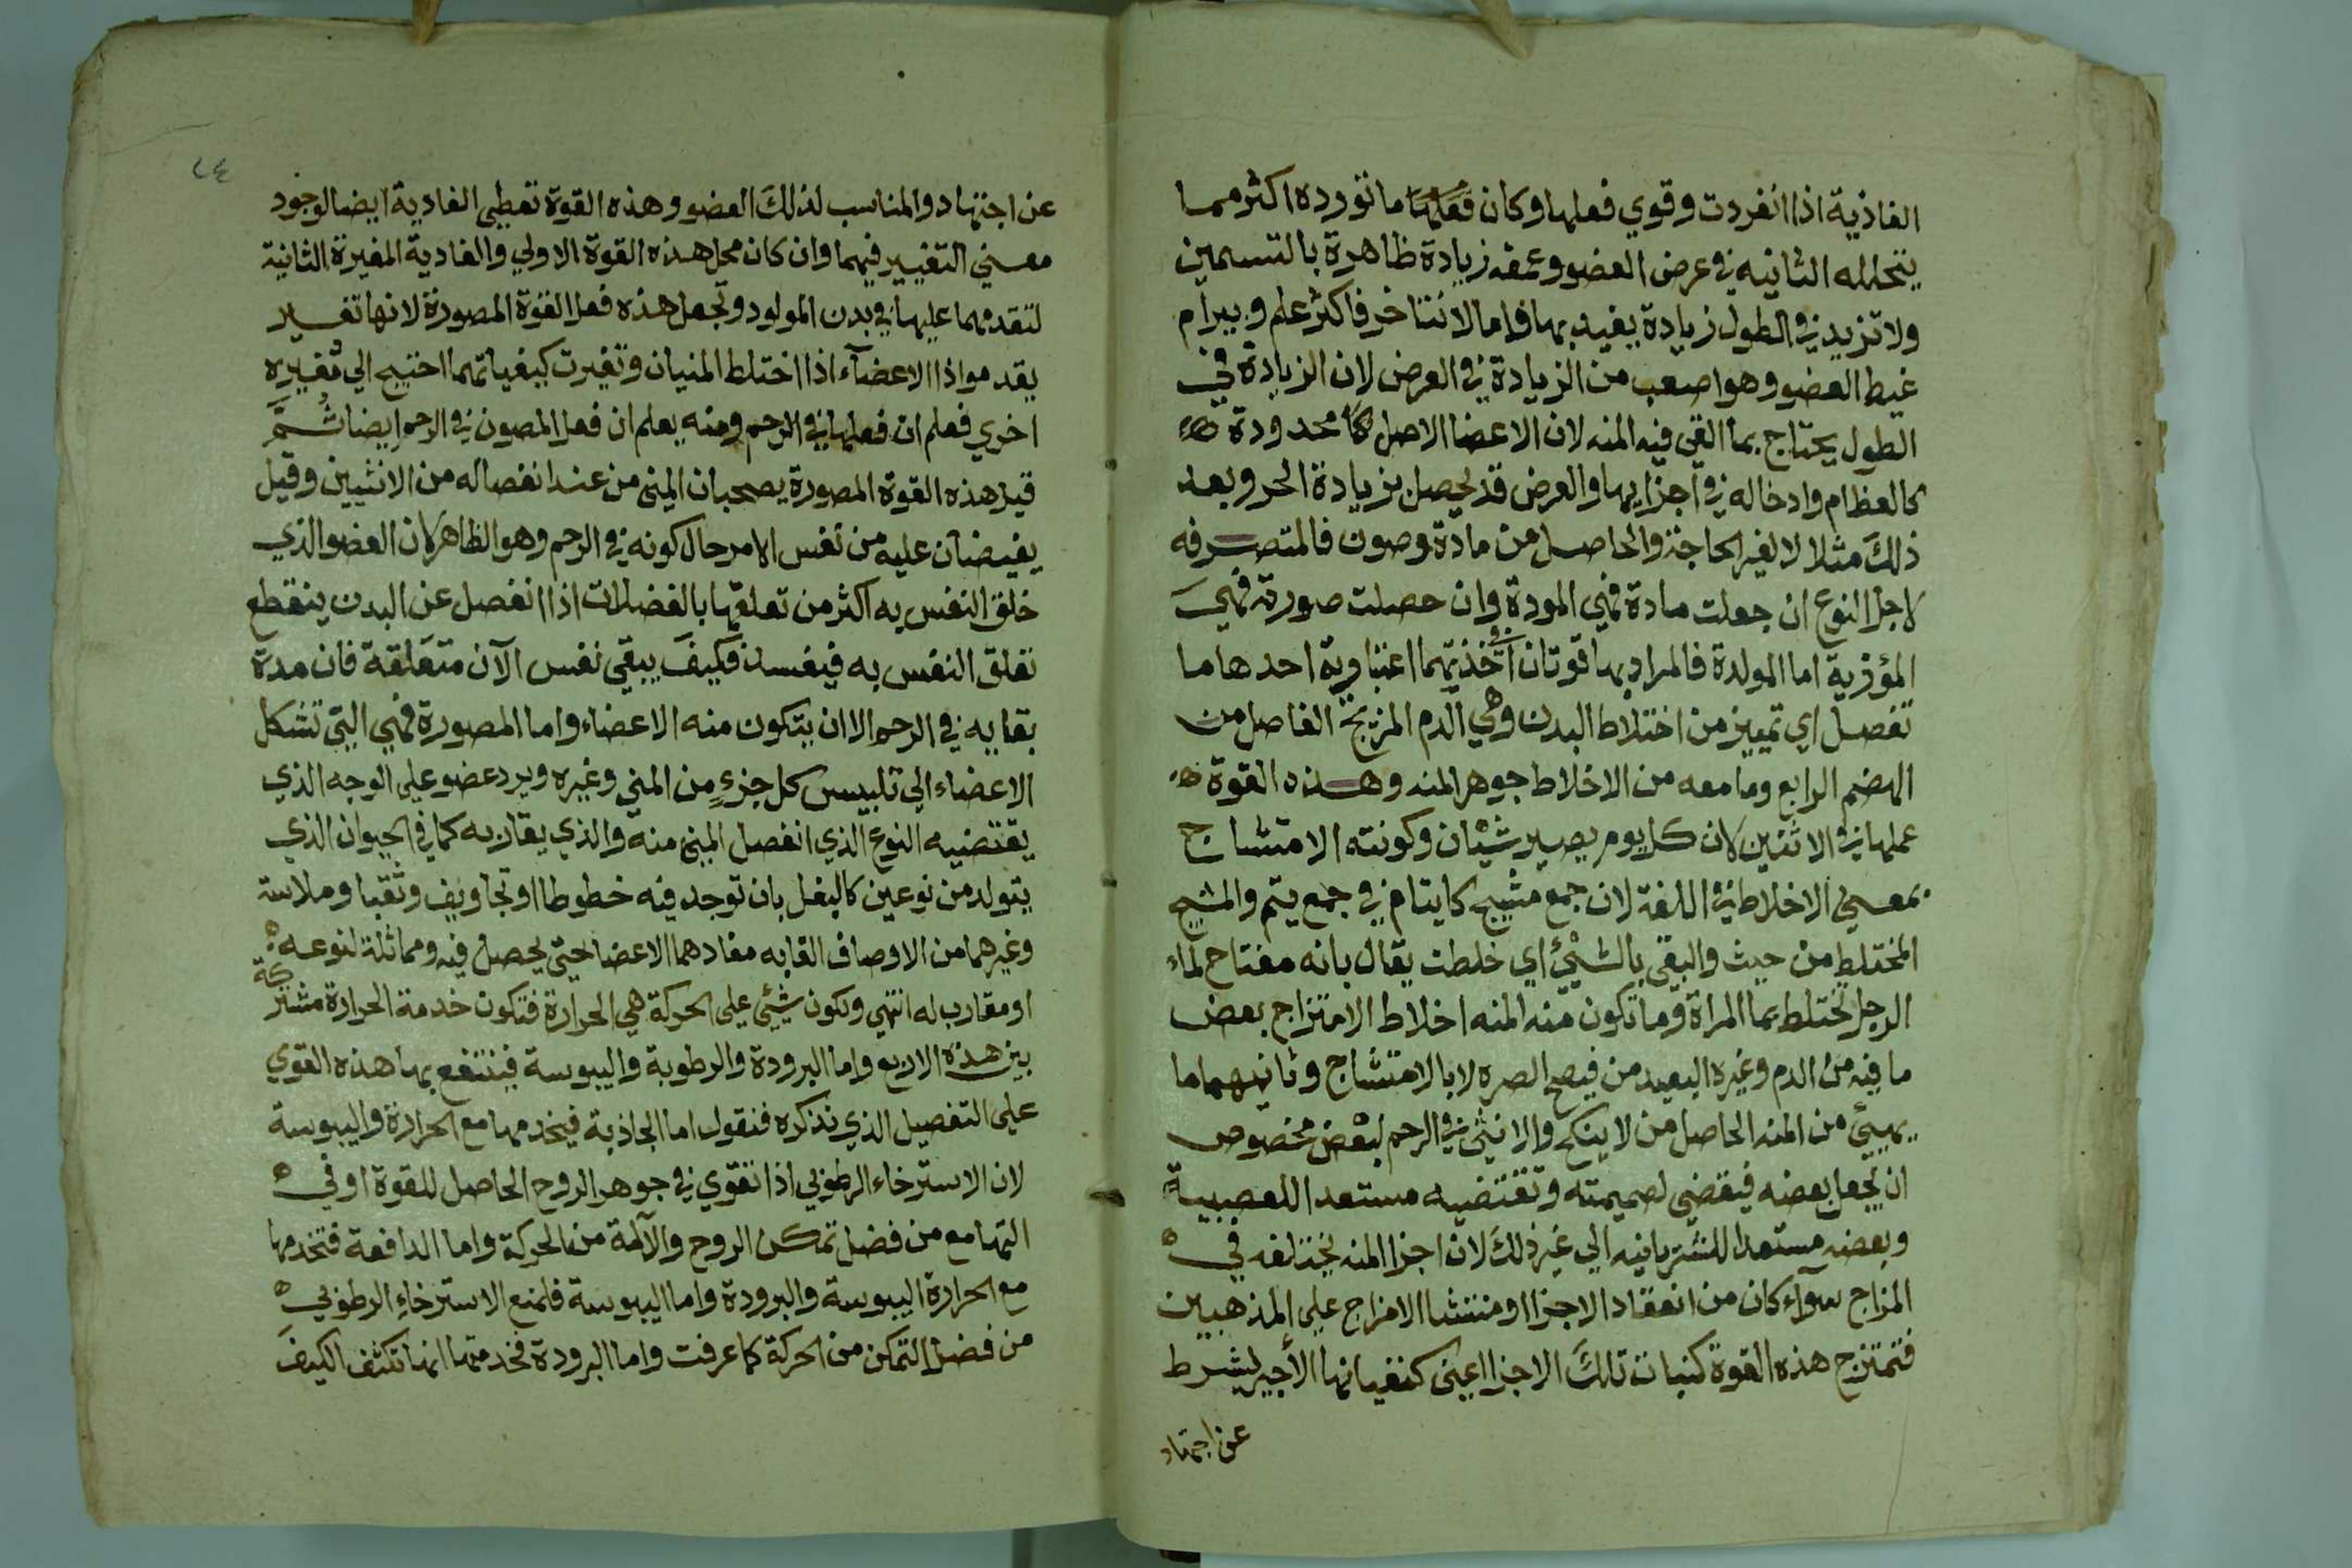 الغاذية اذا انفردت وقوي فعلها وكان فعلها ما تورده اكثر مما
يتحلله الثانيه في عرض العضو وعمقه زيادة ظاهرة بالتسمين
ولا تزيد في الطول زيادة يغيد بها فاما لا نتاخر فاكثر علم وبيرام
غيط العضو وهو اصعب من الزيادة في العرض لان الزيادة في
الطول يحتاج بما القي فيه المنه لان الاعضا الاصل كا محدودة
كالعظام وادخاله في اجزايها والعرض قد يحصل بزيادة الحر وبعد
ذلك مثلا لا لغير الحاجة والحاصل من مادة وصون فالمتصرفه
لاجل النوع ان جعلت مادة فهي المودة وان حصلت صورته فهي
المؤفرية اما المولدة فالمراد بها قوتان اتخذيتهما اعتبارية احدها ما
تفصل اي تمييز من اختلاط البدن وهي الدم المزيجة الفاصل من
الهضم الرابع وما معه من الاخلاط جوهر المنه وهذه القوة
عملها في الاثنين لان كل يوم يصير شيئان وكونته الامتشاج
بمعني الاخلاط في اللغة لان جمع مشيج كايتام في جمع يتم والمشيج
المختلط من حيث والبقي بالشيئ اي خلطت يقال بانه مفتاح لماء
الرجل تختلط بما المراة وما تكون منه المنه اخلاط الامتزاج بعض
ما فيه من الدم وغيره البعيد من فيصح الصره لا بالامتشاج وثانيهما ما
يهيئ من المنه الحاصل من لا ينكح والانثي في الرحم لبعض مخصوص
ان يجعل بعضه فيقضي لصميمته وتقتضيه مستعدا للعصبية
وبعضه مستعدا للشريانيه الي غير ذلك لان اجزا المنه يختلفه في
المزاج سوآء كان من انعقاد الاجزا او منتشا الامزاج علي المذهبين
فتمتزج هذه القوة كنبات تلك الاجزا اعنى كنفياتها الأجير ليشرط
عن اجتهاد
٢٤
عن اجتهاد والمناسب لذلك العضو وهذه القوة تعطي الغادية ايضا لوجود
معني التغيير فيهما وان كان محل هذه القوة الاولي والغادية المغيرة الثانية
لتقدمهما عليها في بدن المولود وتجعل هذه فعل القوة المصورة لانها تغسير
يقدمو اذا الاعضآء اذا اختلط المنيان وتغيرت كيفياتهما احتيج الي تغييره
اخري فعلم ان فعلها في الرحم ومنه يعلم ان فعل المصون في الرحم ايضا ثم
قيل هذه القوة المصورة يصحبان المني من عند انفصاله من الانثيين وقيل
يفيضان عليه من نفس الامر حال كونه في الرحم وهو الظاهر لان العضو الذي
خلق النفس به اكثر من تعلقها بالفضلات اذا انفصل عن البدن ينقطع
تعلق النفس به فيفسد فكيف يبقي نفس الآن متعلقة فان مدة
بقايه في الرحم الا ان يتكون منه الاعضاء واما المصورة فهي التي تشكل
الاعضاء الي تلبيس كل جزء من المني وغيره ويرد عضو علي الوجه الذي
يقتضيه النوع الذي انفصل المني منه والذي يقاربه كما في الحيوان الذي
يتولد من نوعين كالبغل بان توجد فيه خطوطا او تجاويف وثقبا وملاسة
وغيرهما من الاوصاف القابه مفادهما الاعضا حتي يحصل فيه ومماثلة لنوعه
او مقارب له انتهي وتكون شيئ علي الحركة هي الحرارة فتكون خدمة الحرارة مشتركة
بين هذه الاربع واما البرودة والرطوبة واليبوسة فينتفع بها هذه القوي
علي التفصيل الذي نذكره فنقول اما الجاذبة فيخدمها مع الحرارة واليبوسة
لان الاسترخاء الرطوبي اذا تقوي في جوهر الروح الحاصل للقوة او في
التهامع من فضل تمكن الروح والآلة من الحركة واما الدافعة فتخدمها
مع الحرارة اليبوسة والبرودة واما اليبوسة فلمنع الاسترخاء الرطوبي
من فضل التمكن من الحركة كما عرفت واما البرودة فخدمتها انها تكثف الكيف